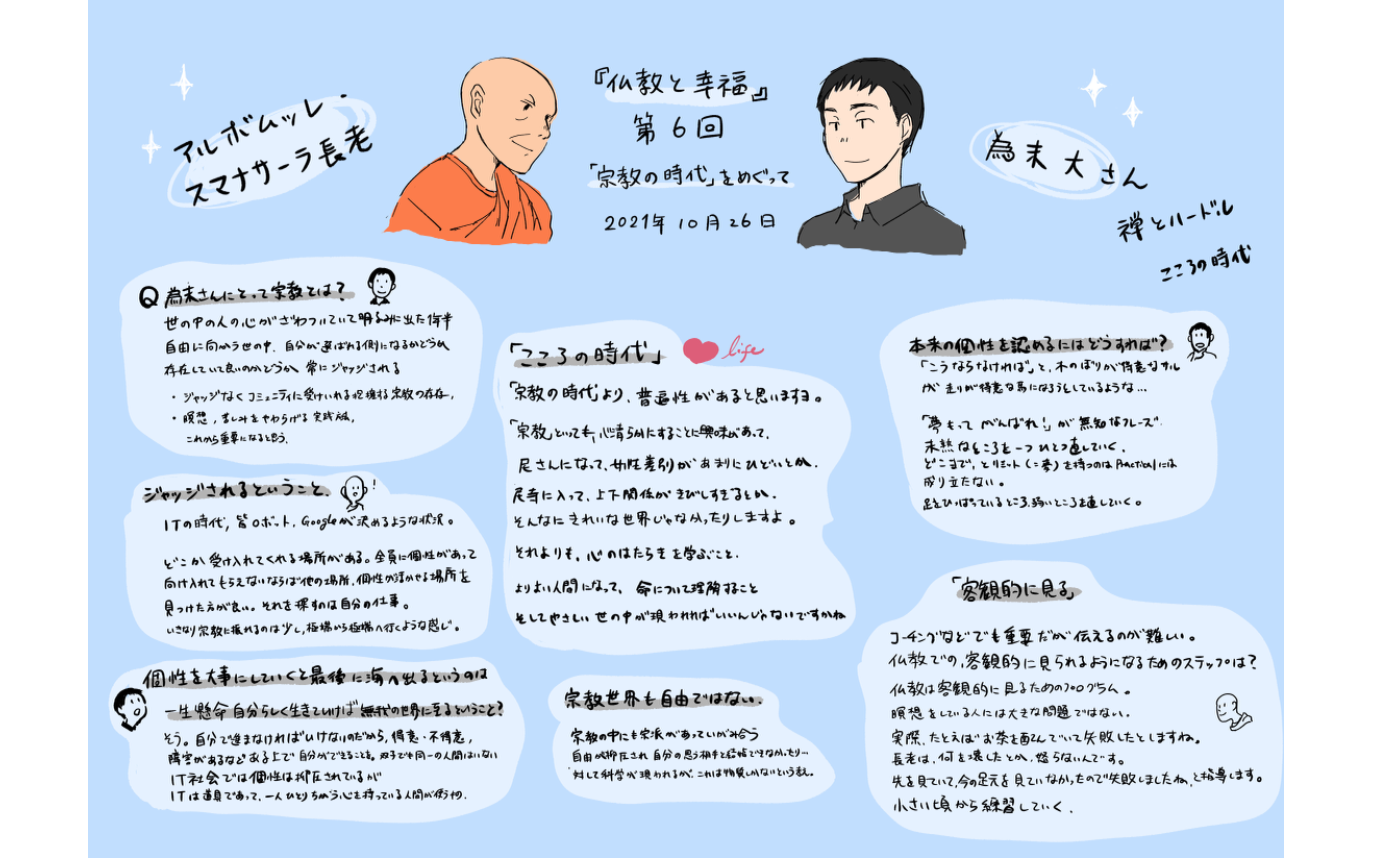 アルボムッレ・
スマナサーラ長老
『仏教と幸福』
第6回
「宗教の時代」をめぐって
2021年10月26日
為末大さん
禅とハードル
こころの時代
Q 為末さんにとって宗教とは?
世の中の人の心がざわついていて明るみに出た1年半
自由に向かう世の中、自分が選ばれる側になるかどうか
存在していて良いのかどうか 常にジャッジされる
・ジャッジなくコミュニティに受けいれる 宗教の存在,
・瞑想,苦しみをやわらげる実践 ,
これから重要になると思う.
ジャッジされるということ.
ITの時代,皆ロボット,Googleが決めるような状況。
どこか受け入れてくれる場所がある。全員に個性があって
向け入れてもらえないならば他の場所,個性が活かせる場所を
見つけた方が良い。それを探すのは自分の仕事。
いきなり宗教に振れるのは少し,極端から極端へ行くような感じ。
個性を大事にしていくと最後に海へ出るというのは
一生懸命自分らしく生きていけば無我の世界に至るということ?
そう。自分で進まなければいけないのだから,得意・不得意,
障害があるなどある上で自分ができることを。双子でも同一の人間はいない
IT社会では個性は抑圧されているが
ITは道具であって,一人ひとりちがう心を持っている人間が使うもの.
「こころの時代」 life
「宗教の時代」より、普遍性があると思いますよ。
「宗教」といっても,心清らかにすることに興味があって,
尼さんになって,女性差別があまりにひどいとか.
尼寺に入って,上下関係がきびしすぎるとか.
そんなにきれいな世界じゃなかったりしますよ。
それよりも、心のはたらきを学ぶこと.
よりよい人間になって、命について理解すること
そしてやさしい世の中が現われればいいんじゃないですかね
宗教世界も自由ではない.
宗教の中にも宗派があっていがみ合う
自由が抑圧され,自分の思う相手と結婚できなかったり…
対して科学が現われるが,これは物質しかないという教え.
本来の個性を認めるにはどうすれば?
「こうならなければ」と,木のぼりが得意なサル
が 走りが得意な馬になろうとしているような…
「夢もって がんばれ!」が無知なフレーズ.
未熟なところを一つひとつ直していく.
どこまで,とリミット()を持つのはPracticalには
成り立たない。
足をひっぱっているところ,弱いところを直していく。
「客観的に見る」
コーチングなどでも重要だが伝えるのが難しい。
仏教での,客観的に見られるようになるためのステップは?
仏教は客観的に見るためのプログラム。
瞑想をしている人には大きな問題ではない.
実際,たとえばお茶を運んでいて失敗したとしますね。
長老は,何を壊したとか,怒らないんです。
先を見ていて,今の足元を見ていなかったので失敗しましたね,と指導します。
小さい頃から練習していく.